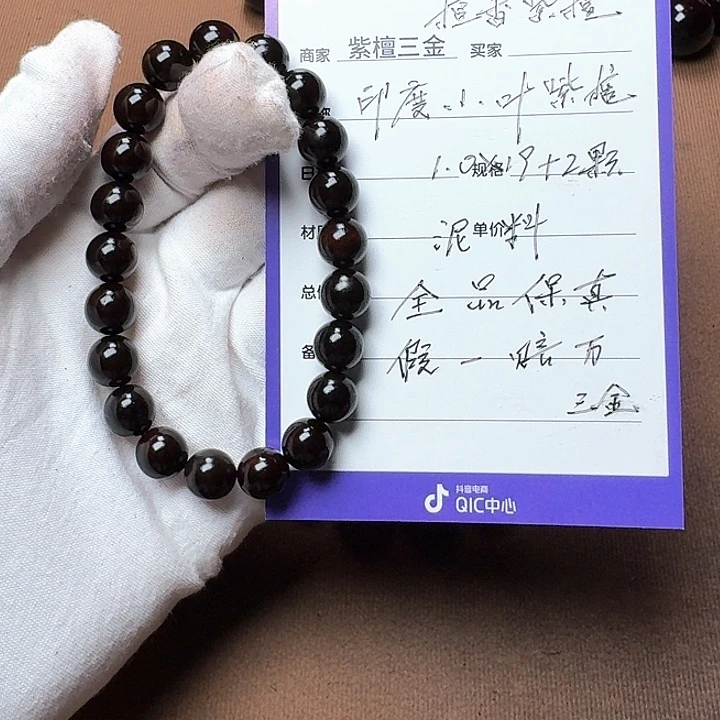 檀香紫檀
商家 紫檀三金 买家
印度小叶紫檀
日 1.0 规格 19+2颗
材 泥 单价 料
总 全品保真
备 假一赔万
三金
抖音电商
QIC中心